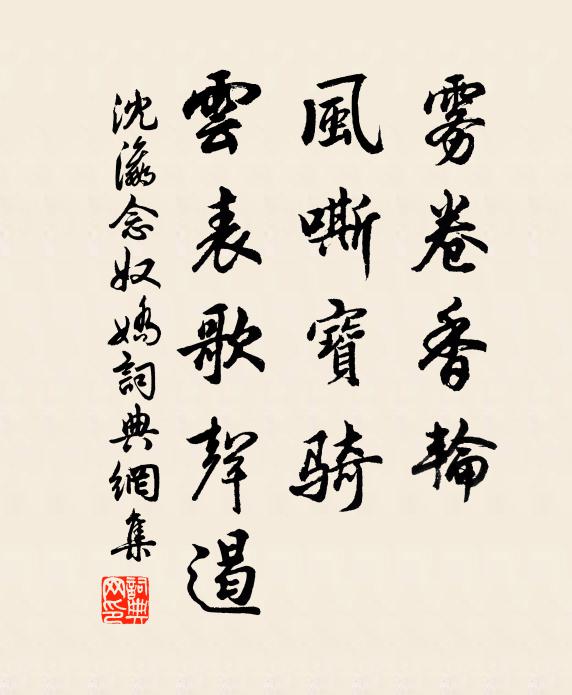 雾卷香輪
風嘶寶騎
雲表歌聲遏
沈瀛念奴嬌詞典網集
詞典网印